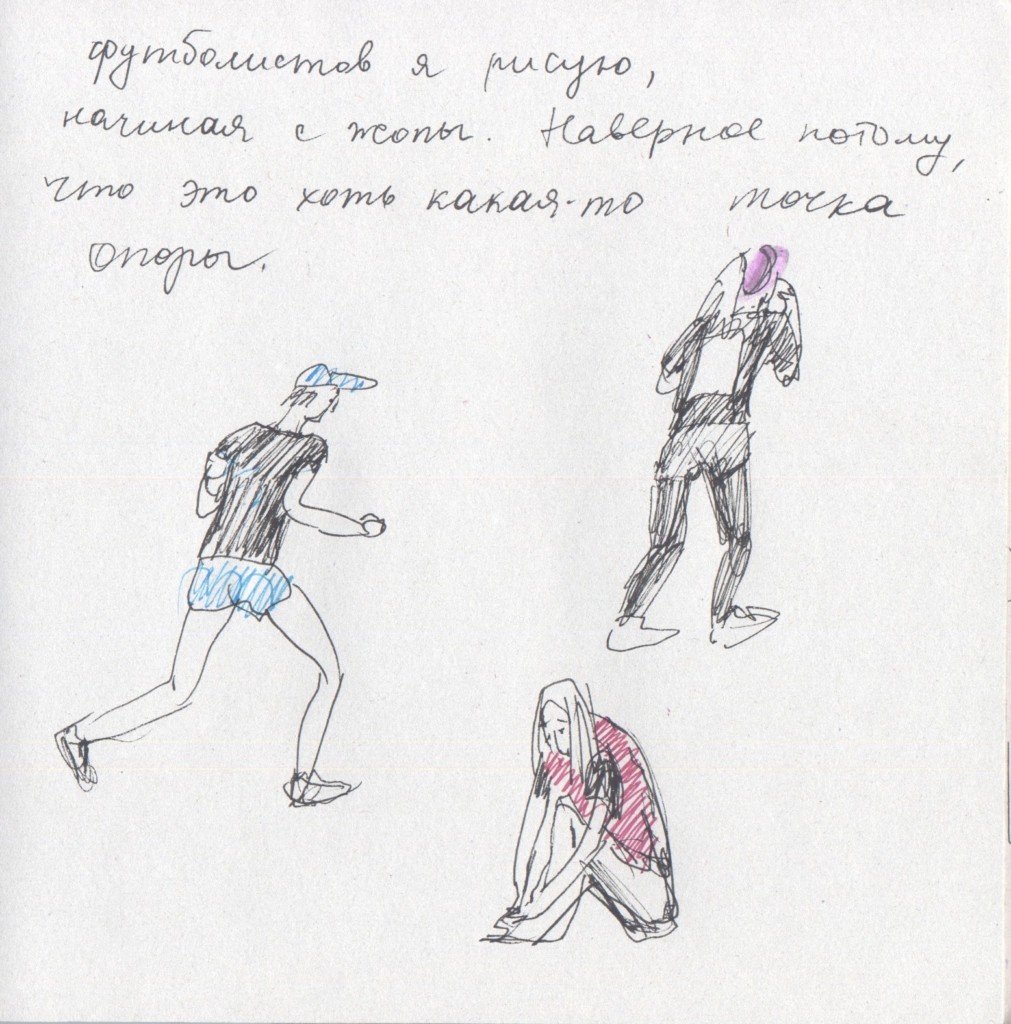 футболистов я рисую,
начиная с жопы. Наверное потому,
что это хоть какая-то точка
опоры.